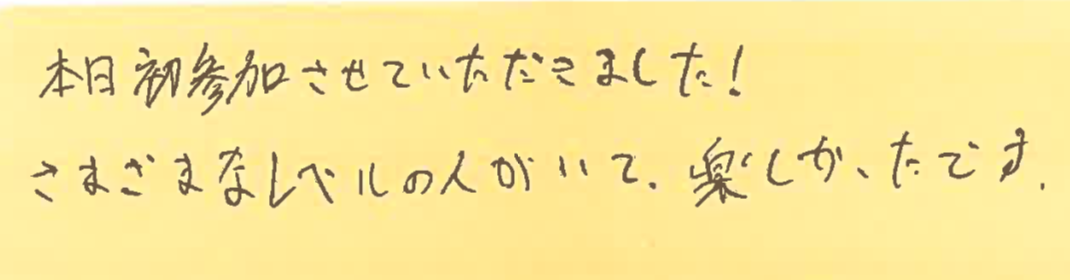 本日初参加させていただきました!
さまざまなレベルの人がいて、楽しかったです.